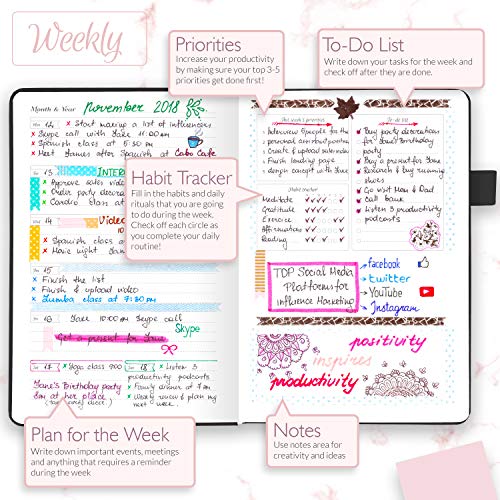 Weekly
Priorities
Increase your productivity
by making sure your top 3-5
priorities get done first!
To-Do List
Write down your tasks for the week and
check off after they are done.
Month & Year november 2018
Mon 12 x Start making a list of influencers
x Skype call with Jane 11:00 AM
x Spanish class at 5:30 PM
x Meet James after Spanish at Cabo Cafe
13
x Approve sales video
x Order party decorations
x Cardio class at
14 Video
x Spanish class
x Movie night
Habit Tracker
Fill in the habits and daily
rituals that you are going
to do during the week.
Check off each circle as
you complete your daily
routine!
15
x Finish the list
x Finish & upload video
x Zumba class at 7:30 PM
16 Jane 10:00 AM Skype call
Skype
Get a present for Jane
17 x Yoga class 9:00
Jane's Birthday party
8PM at her place
18 x Listen 3
productivity podcasts
x Family dinner at 7 PM
x Review & plan my
next week
This week's priorities
Interview 5 people for the
personal assistant position
Create & upload interview
Finish landing page
design concept with Jane
To-do list
Buy party decorations
for Jane's Birthday
party
Buy a present for Jane
Research & buy running
shoes
Go visit Mom & Dad
Call bank
Listen 3 productivity
podcasts
Habit tracker
Meditate
Gratitude
Exercise
Affirmations
Reading
TOP Social Media
Platforms for
Influence Marketing
facebook
twitter
YouTube
Instagram
positivity
inspires
productivity
Plan for the Week
Write down important events, meetings
and anything that requires a reminder
during the week
Notes
Use notes area for
creativity and ideas